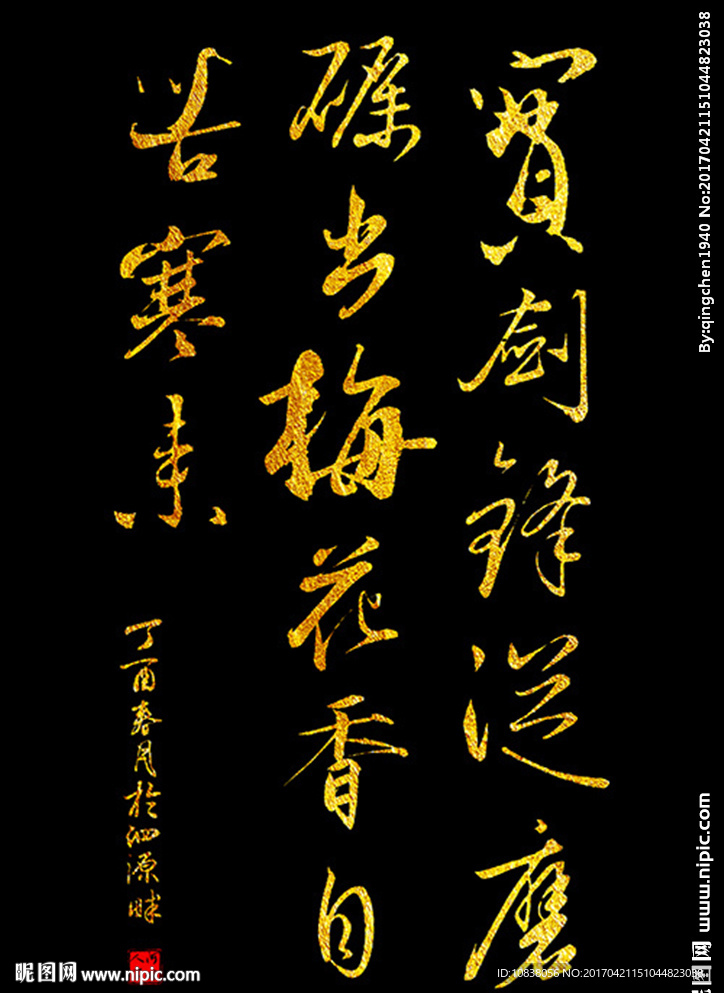 寶劍鋒從磨
礪出梅花香自
苦寒来
丁酉春月於泗源畔
By:qingchen1940 No:20170421151044823038
www.nipic.com
昵图网 www.nipic.com
ID:10838056 NO:20170421151044823038